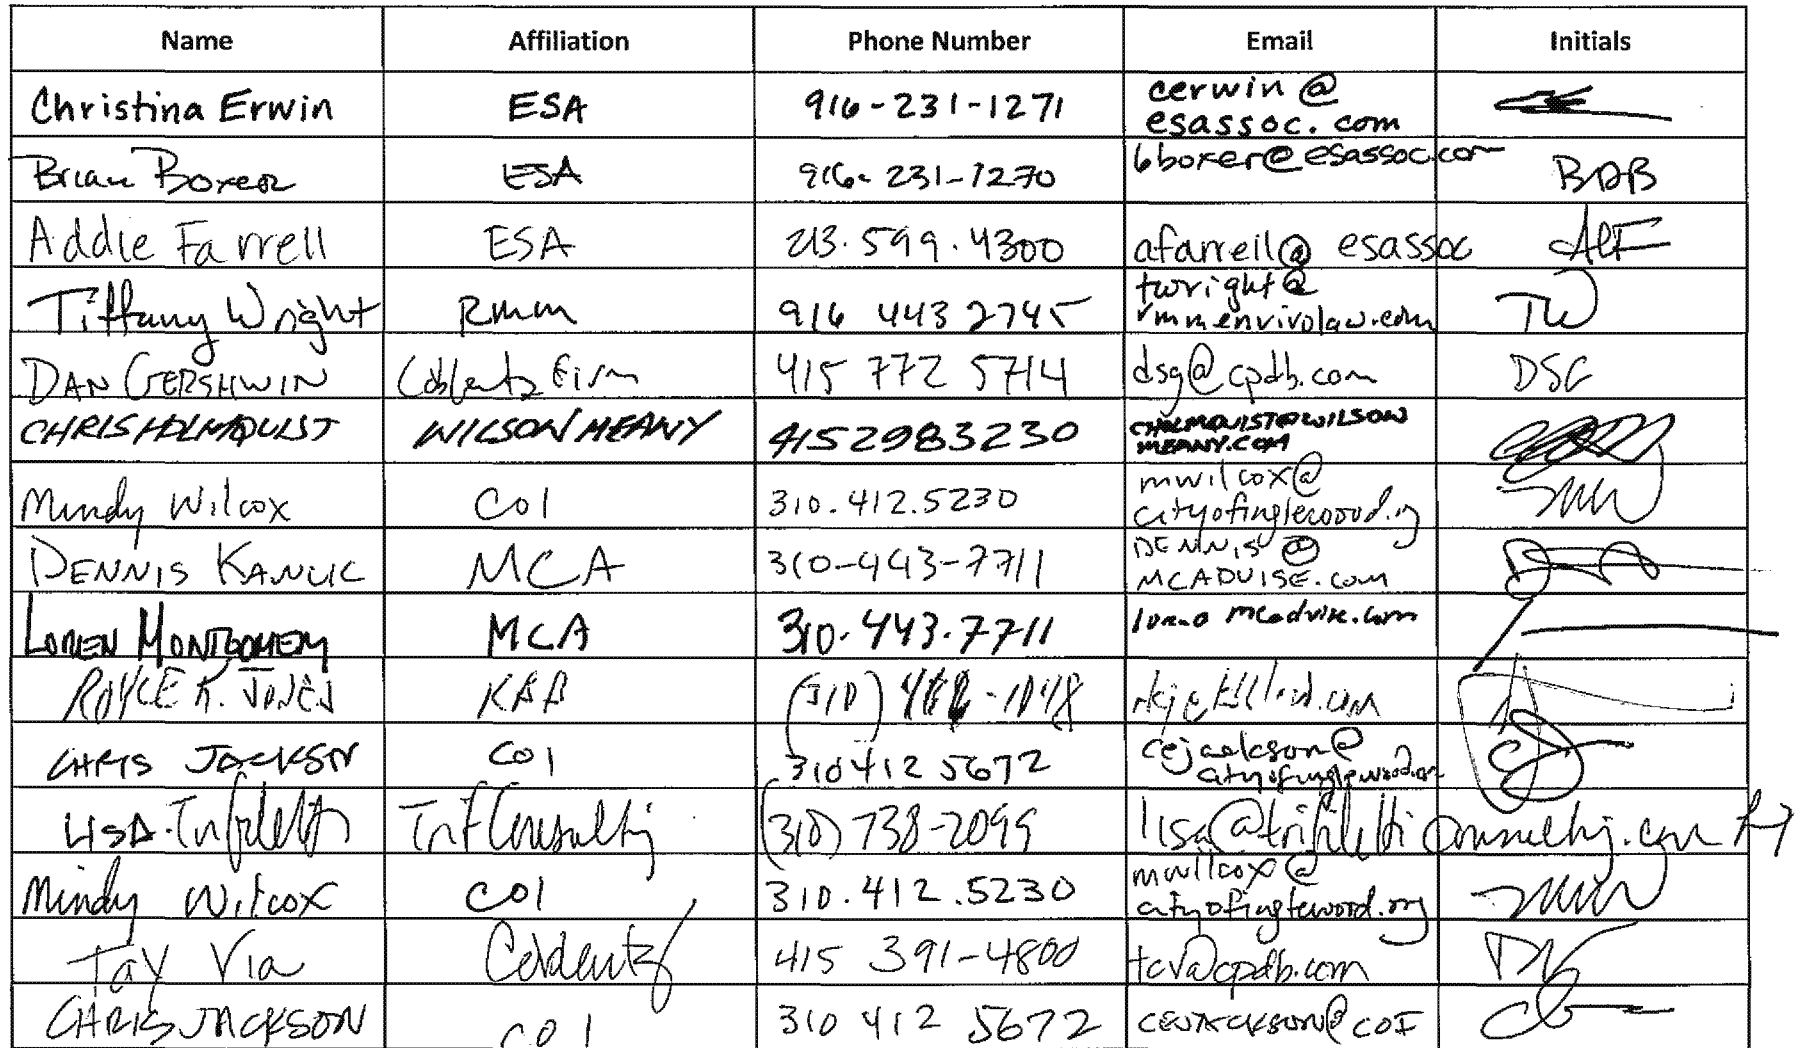 Name Affiliation Phone Number Email Initials
Christina Erwin ESA 916-231-1271 cerwin@
esassoc.com
Brian Boxer ESA 916-231-1270 bboxer@esassoc.com BDB
Addie Farrell ESA 213.599.4300 afarrell@esassoc ALF
Tiffany Wright Rmm 916 443 2745 twright@
rmmenvirolaw.com TW
DAN GERSHWIN Coblentz firm 415 772 5714 dsg@cpdb.com DSG
CHRIS HOLMQUIST WILSON MEANY 4152983230 CHOLMQUIST@WILSON
MEANY.COM
Mindy Wilcox COI 310.412.5230 mwilcox@
cityofinglewood.org MW
DENNIS KANUK MCA 310-443-7711 DENNIS@
MCADVISE.com
LOREN MONTGOMERY MCA 310.443.7711 mcadvise.com
ROYCE K. JONES (310)
CHRIS JACKSON COI 310 412 5672 cejackson@
cityofinglewood.org CJ
LISA Trifiletti Trif Consulting (310) 738-2099 lisa@trifiletticonsulting.com
Mindy Wilcox COI 310.412.5230 mwilcox@
cityofinglewood.org MW
Tay Via Coblentz 415 391-4800 tcv@cpdb.com
CHRIS JACKSON COI 310 412 5672 CEJACKSON@COI